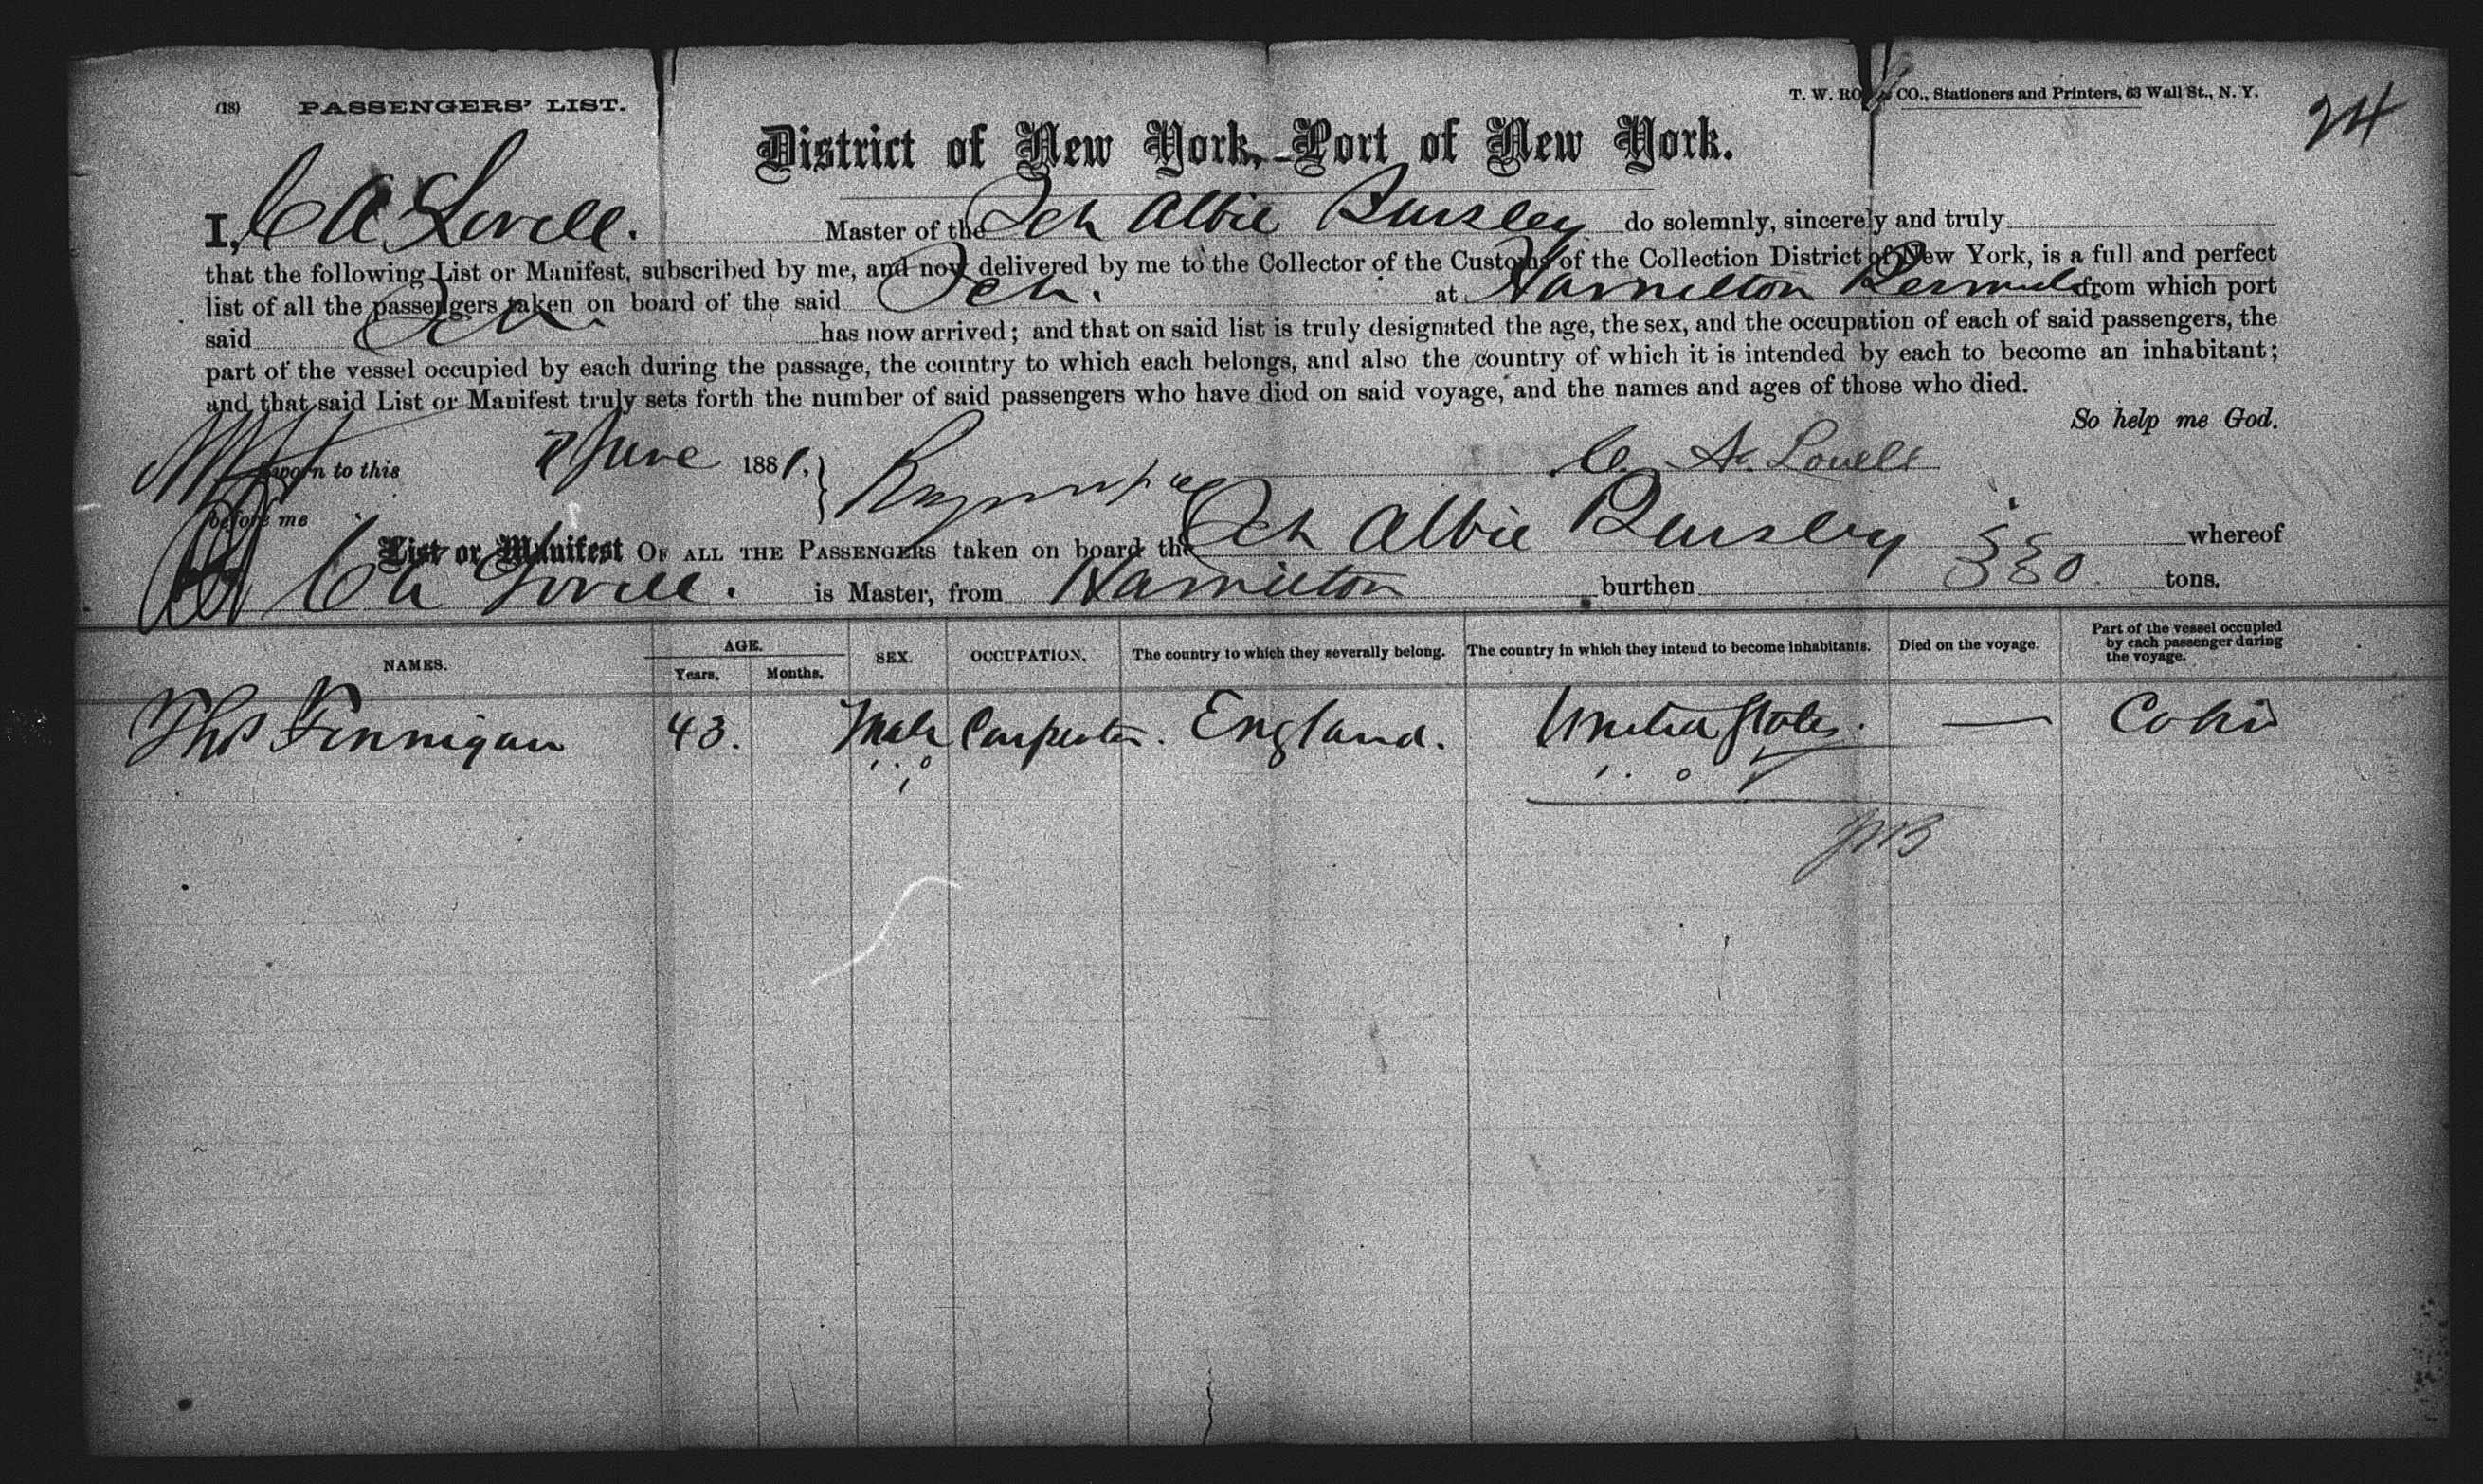 (18) PASSENGERS' LIST.
T. W. RO CO., Stationers and Printers, 63 Wall St., N. Y.
24
District of New York, Port of New York.
I, C A Lovell. Master of the Sch Abbie Bursley do solemnly, sincerely and truly
that the following List or Manifest, subscribed by me, and now delivered by me to the Collector of the Customs of the Collection District of New York, is a full and perfect
list of all the passengers taken on board of the said Sch. at Hamilton Bermuda from which port
said Sch. has now arrived; and that on said list is truly designated the age, the sex, and the occupation of each of said passengers, the
part of the vessel occupied by each during the passage, the country to which each belongs, and also the country of which it is intended by each to become an inhabitant;
and that said List or Manifest truly sets forth the number of said passengers who have died on said voyage, and the names and ages of those who died.
So help me God.
Sworn to this 7 June 1881. C. A. Lovell
before me
List or Manifest OF ALL THE PASSENGERS taken on board the Sch Abbie Bursley whereof
C A Lovell. is Master, from Hamilton burthen 330 tons.
NAMES. AGE. Years. Months. SEX. OCCUPATION. The country to which they severally belong. The country in which they intend to become inhabitants. Died on the voyage. Part of the vessel occupied by each passenger during the voyage.
Thos Finnigan 43. Male Carpenter. England. United States. — Cabin